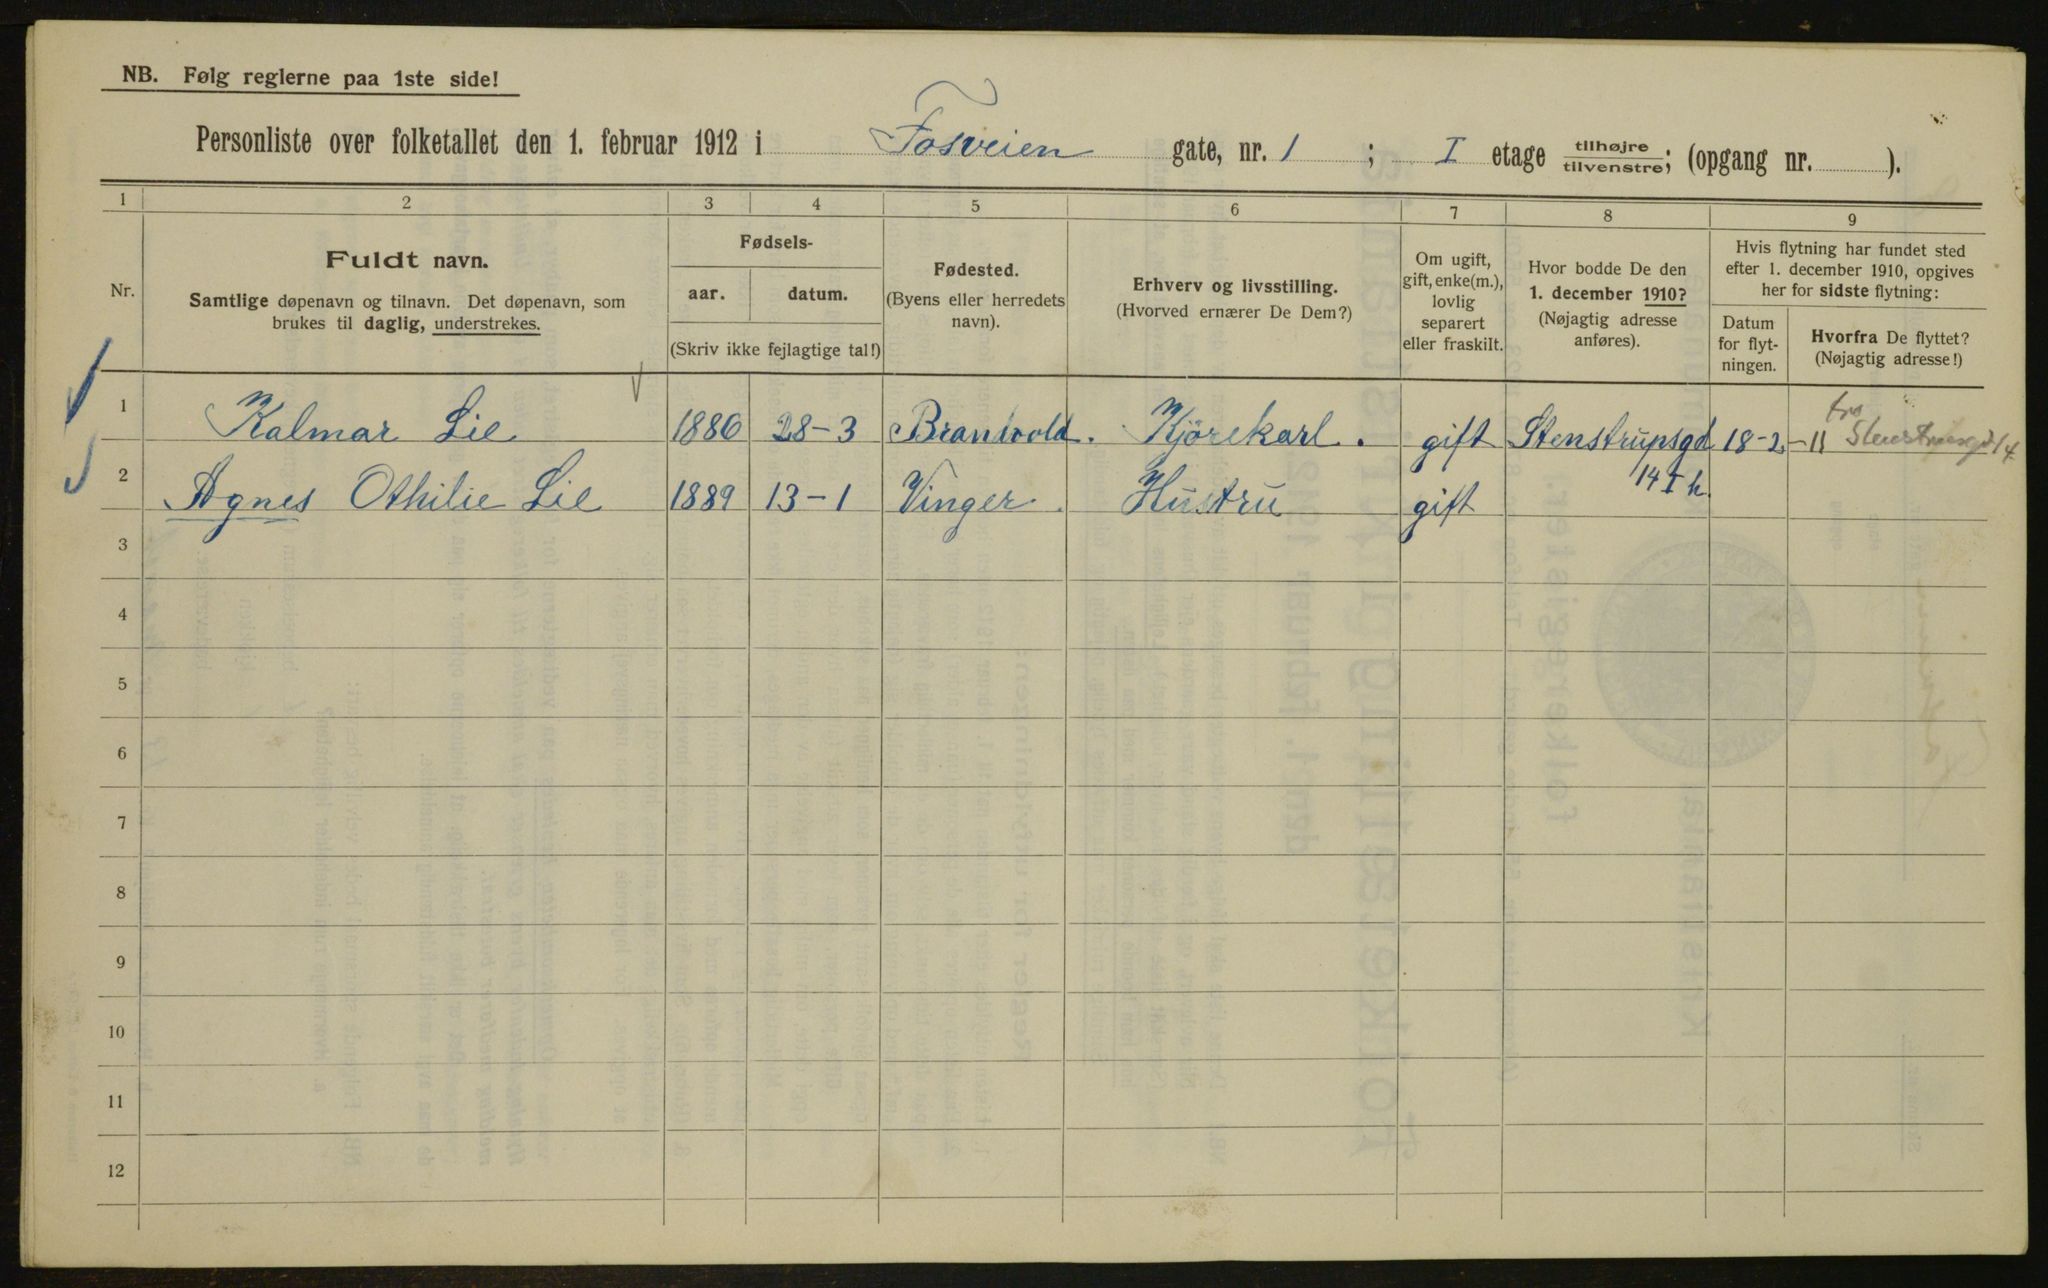 NB. Følg reglerne paa 1ste side!
Personliste over folketallet den 1. februar 1912 i Fosveien gate, nr. 1 ; I etage tilhøjre tilvenstre; (opgang nr. ).
1 2 3 4 5 6 7 8 9
Nr.
Fuldt navn.
Samtlige døpenavn og tilnavn. Det døpenavn, som
brukes til daglig, understrekes.
Fødsels-
aar. datum.
(Skriv ikke fejlagtige tal!)
Fødested.
(Byens eller herredets
navn).
Erhverv og livsstilling.
(Hvorved ernærer De Dem?)
Om ugift,
gift, enke(m.),
lovlig
separert
eller fraskilt.
Hvor bodde De den
1. december 1910?
(Nøjagtig adresse
anføres).
Hvis flytning har fundet sted
efter 1. december 1910, opgives
her for sidste flytning:
Datum
for flyt-
ningen.
Hvorfra De flyttet?
(Nøjagtig adresse!)
1 Kalmar Lie 1886 28-3 Brandvold. Kjörekarl. gift Stenstrupsgd 18-2-11 Stenstrupsgd 14
14 I h.
2 Agnes Othilie Lie 1889 13-1 Vinger. Hustru gift
3
4
5
6
7
8
9
10
11
12